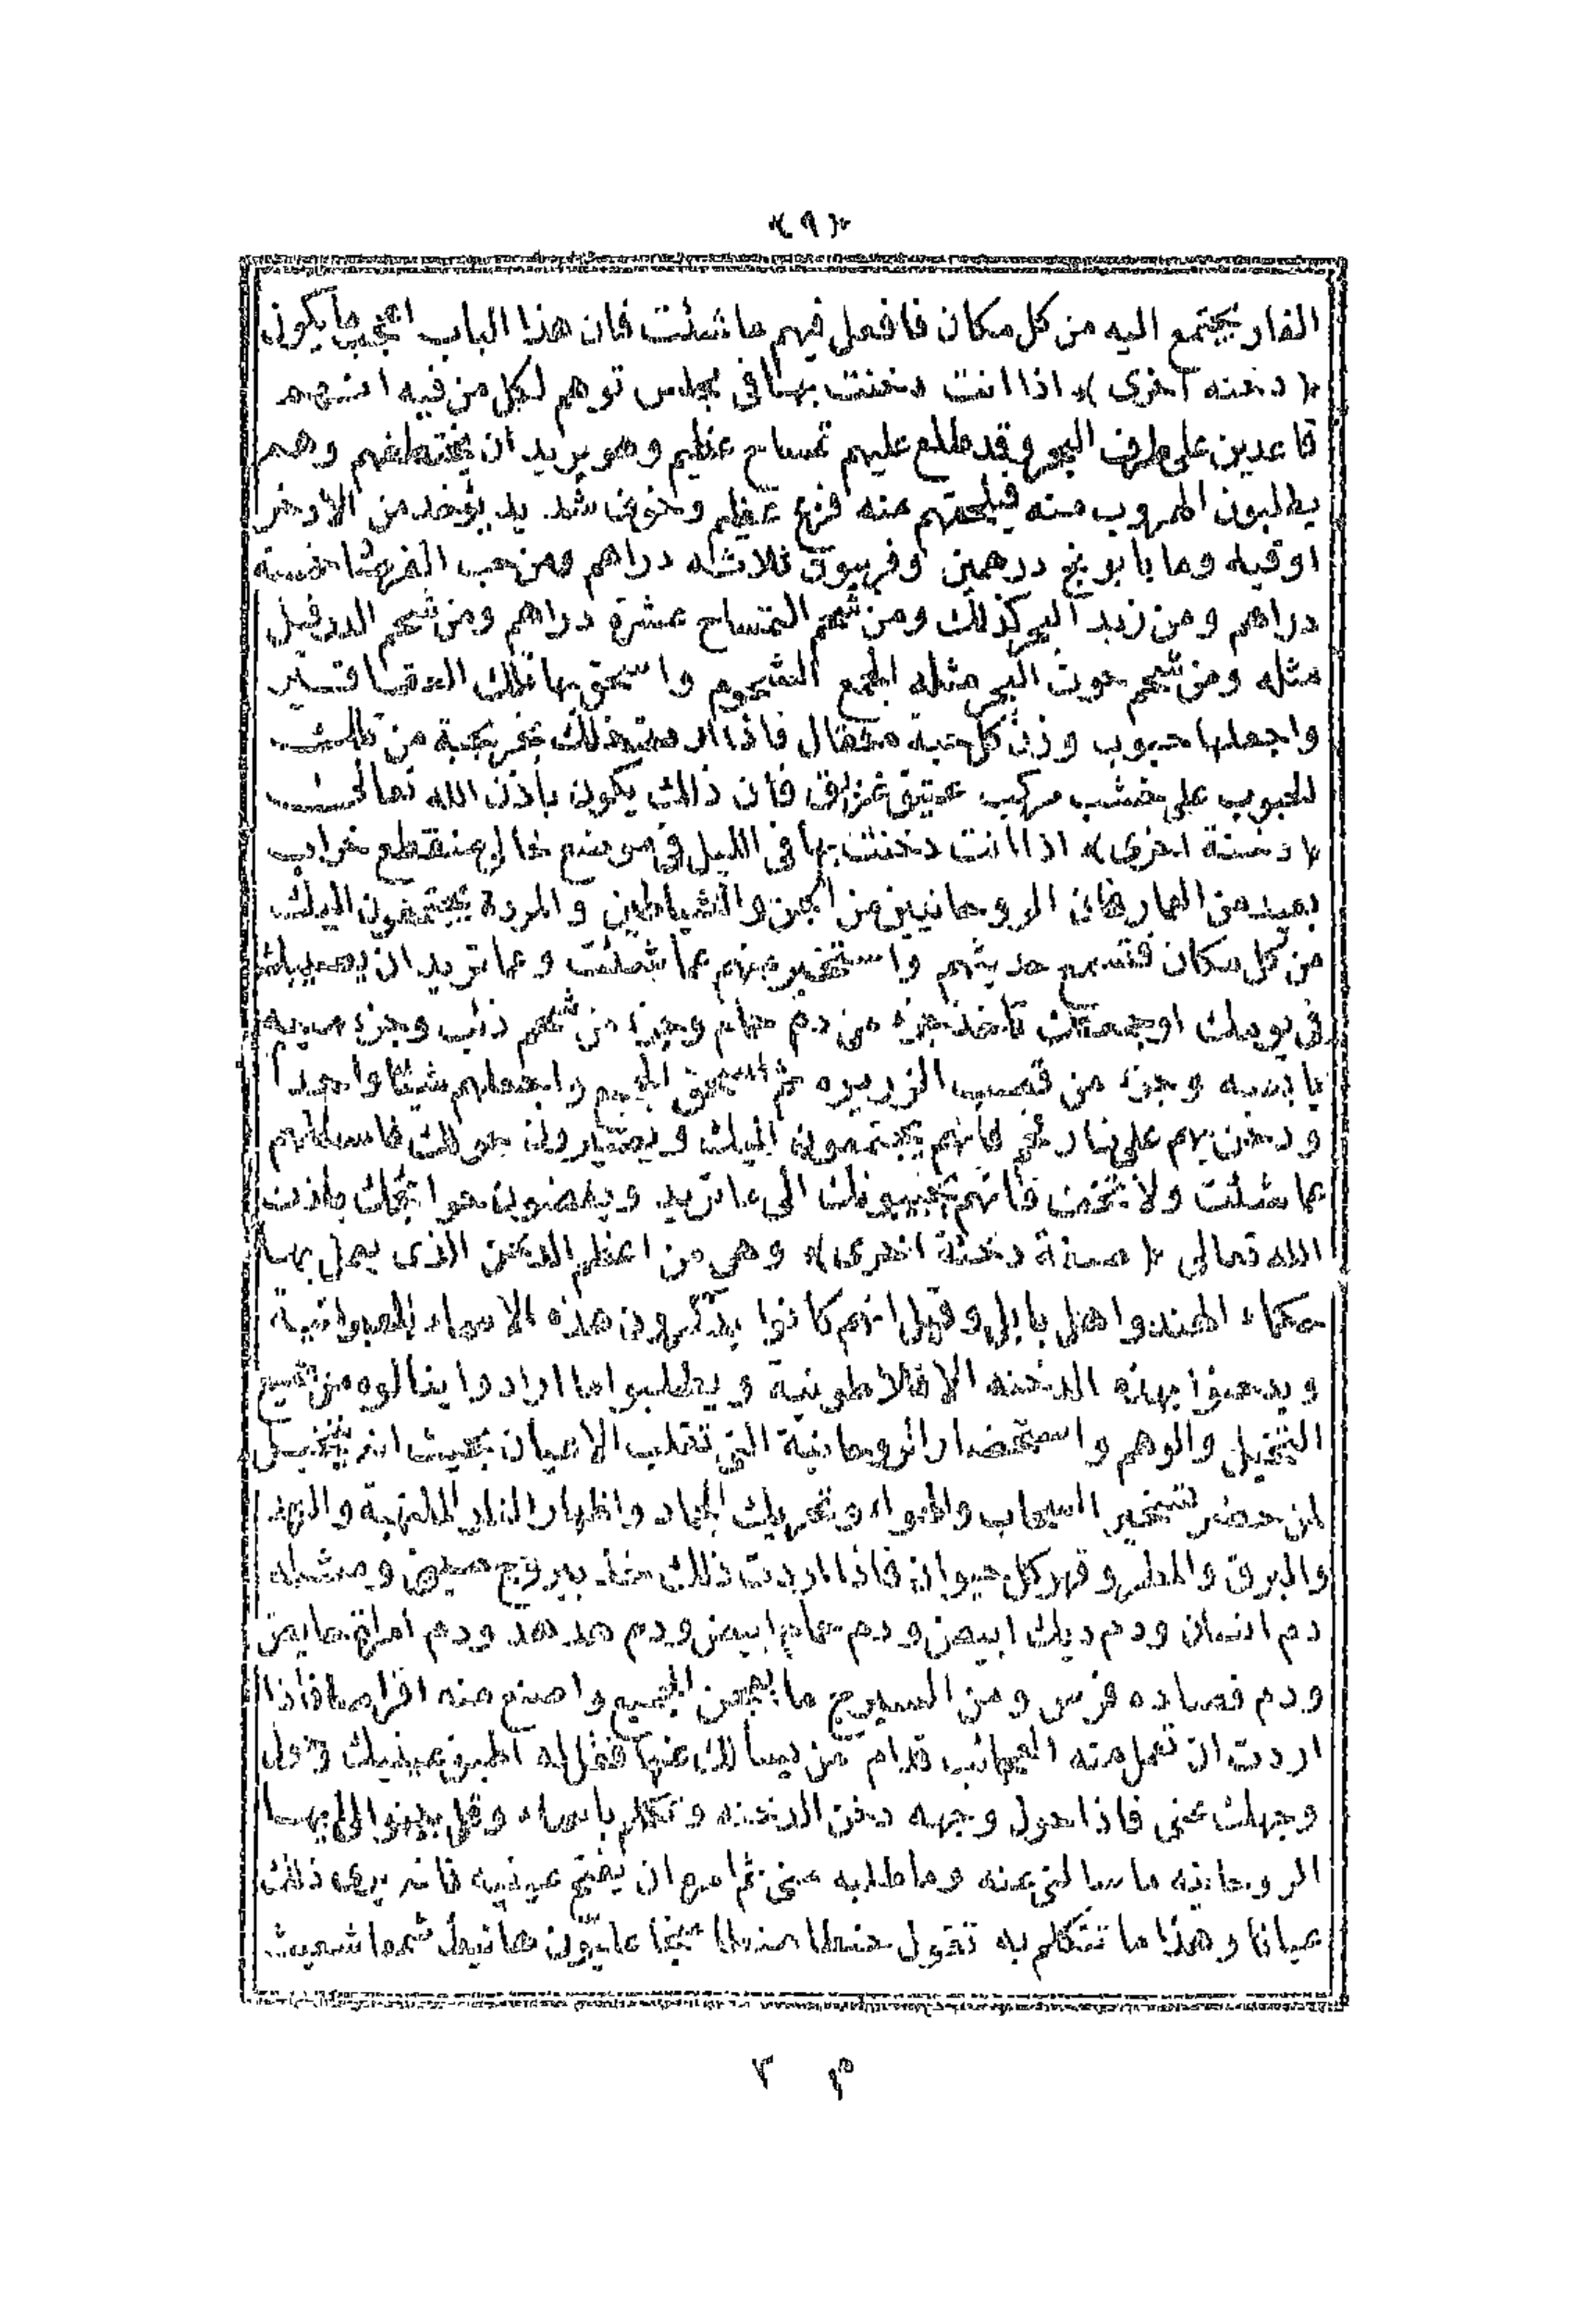 ﴿٩﴾
الفار يجتمع اليه من كل مكان فافعل فيهم ما شئت فان هذا الباب اعجب ما يكون
﴿ دخنه اخرى ﴾ اذا انت دخنت بها فى مجلس توهم لكل من فيه انهم
قاعدين على طرف البحر وقد طلع عليهم تمساح عظيم وهو يريد ان يختطفهم وهم
يطلبون الهروب منه فيلحقهم منه فزع عظيم وخوف شديد يؤخذ من الاذخر
اوقيه وما بابونج درهمين وفربيون ثلاثه دراهم ومن حب خمسة
دراهم ومن زبد البحر كذلك ومن شحم التمساح عشرة دراهم ومن شحم الدرفيل
مثله ومن شحم حوت البحر مثله اجمع الشحوم واسحق بها تلك العقاقير
واجعلها حبوب وزن كل حبة مثقال فاذا اردت ذلك بخر بحبة من تلك
الحبوب على خشب مركب عتيق غرق فان ذلك يكون باذن الله تعالى
﴿ دخنة اخرى ﴾ اذا انت دخنت بها فى الليل فى موضع خالى منقطع خراب
بعيد من العمار فان الروحانيين من الجن والشياطين والمردة يجتمعون اليك
من كل مكان فتسمع حديثهم واستخبر منهم عما شئت وعما تريد ان يصيبك
فى يومك او جمعتك تاخذ جزء من دم حمام وجزء من شحم ذئب وجزء ميعه
يابسه وجزء من قصب الزريره ثم اسحق الجميع واجعلهم شيئا واحدا
ودخن بهم على نار فحم فانهم يجتمعون اليك ويصيرون حولك فاسالهم
عما شئت ولا تخف فانهم يجيبونك الى ما تريد ويقضون حوائجك باذن
الله تعالى ﴿ صفة دخنة اخرى ﴾ وهى من اعظم الدخن الذى يعمل بها
حكماء الهند واهل بابل وقيل انهم كانوا يذكرون هذه الاسماء العبرانية
ويدخنوا بهذه الدخنه الافلاطونية ويطلبوا ما ارادوا ينالوه من جميع
التخيل والوهم واستحضار الروحانية التى تقلب الاعيان بحيث انه يتخيل
لمن حضر تسخير السحاب والهواء وتحريك الجماد واظهار النار الملتهبة والرعد
والبرق والمطر وقهر كل حيوان فاذا اردت ذلك خذ يبروح صينى ومثله
دم انسان ودم ديك ابيض ودم حمام ابيض ودم هدهد ودم امراة حايض
ودم فصاده فرس ومن السيرج ما يعجن الجميع واصنع منه اقراصا فاذا
اردت ان تعمل منه العجائب قدام من يسالك عنها فقل له اطبق عينيك وحول
وجهك عنى فاذا حول وجهه دخن الدخنه وتكلم باسماء وقل بينوا لى يها
الروحانيه ما سالنى عنه وما طلبه منى ثم امره ان يفتح عينيه فانه يرى ذلك
عيانا وهذا ما تتكلم به تقول
م ٢